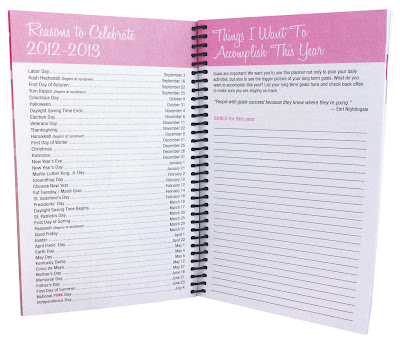 Reasons to Celebrate
2012-2013
Labor Day September 3
Rosh Hashanah (begins at sundown) September 16
First Day of Autumn September 22
Yom Kippur (begins at sundown) September 25
Columbus Day October 8
Halloween October 31
Daylight Saving Time Ends November 4
Election Day November 6
Veterans Day November 11
Thanksgiving November 22
Hanukkah (begins at sundown) December 8
First Day of Winter December 21
Christmas December 25
Kwanzaa December 26
New Year's Eve December 31
New Year's Day January 1
Martin Luther King, Jr. Day January 21
Groundhog Day February 2
Chinese New Year February 10
Fat Tuesday / Mardi Gras February 12
St. Valentine's Day February 14
Presidents' Day February 18
Daylight Saving Time Begins March 10
St. Patrick's Day March 17
First Day of Spring March 20
Passover (begins at sundown) March 25
Good Friday March 29
Easter March 31
April Fools' Day April 1
Earth Day April 22
May Day May 1
Kentucky Derby May 4
Cinco de Mayo May 5
Mother's Day May 12
Memorial Day May 27
Flag Day June 14
Father's Day June 16
First Day of Summer June 21
National PINK Day June 23
Independence Day July 4
Things I Want To
Accomplish This Year
Goals are important! We want you to use this planner not only to plan your daily
activities, but also to see the bigger picture of your long term goals. What do you
want to accomplish this year? List your long term goals here and check back often
to make sure you are staying on track.
"People with goals succeed because they know where they're going."
— Earl Nightingale
GOALS for this year: